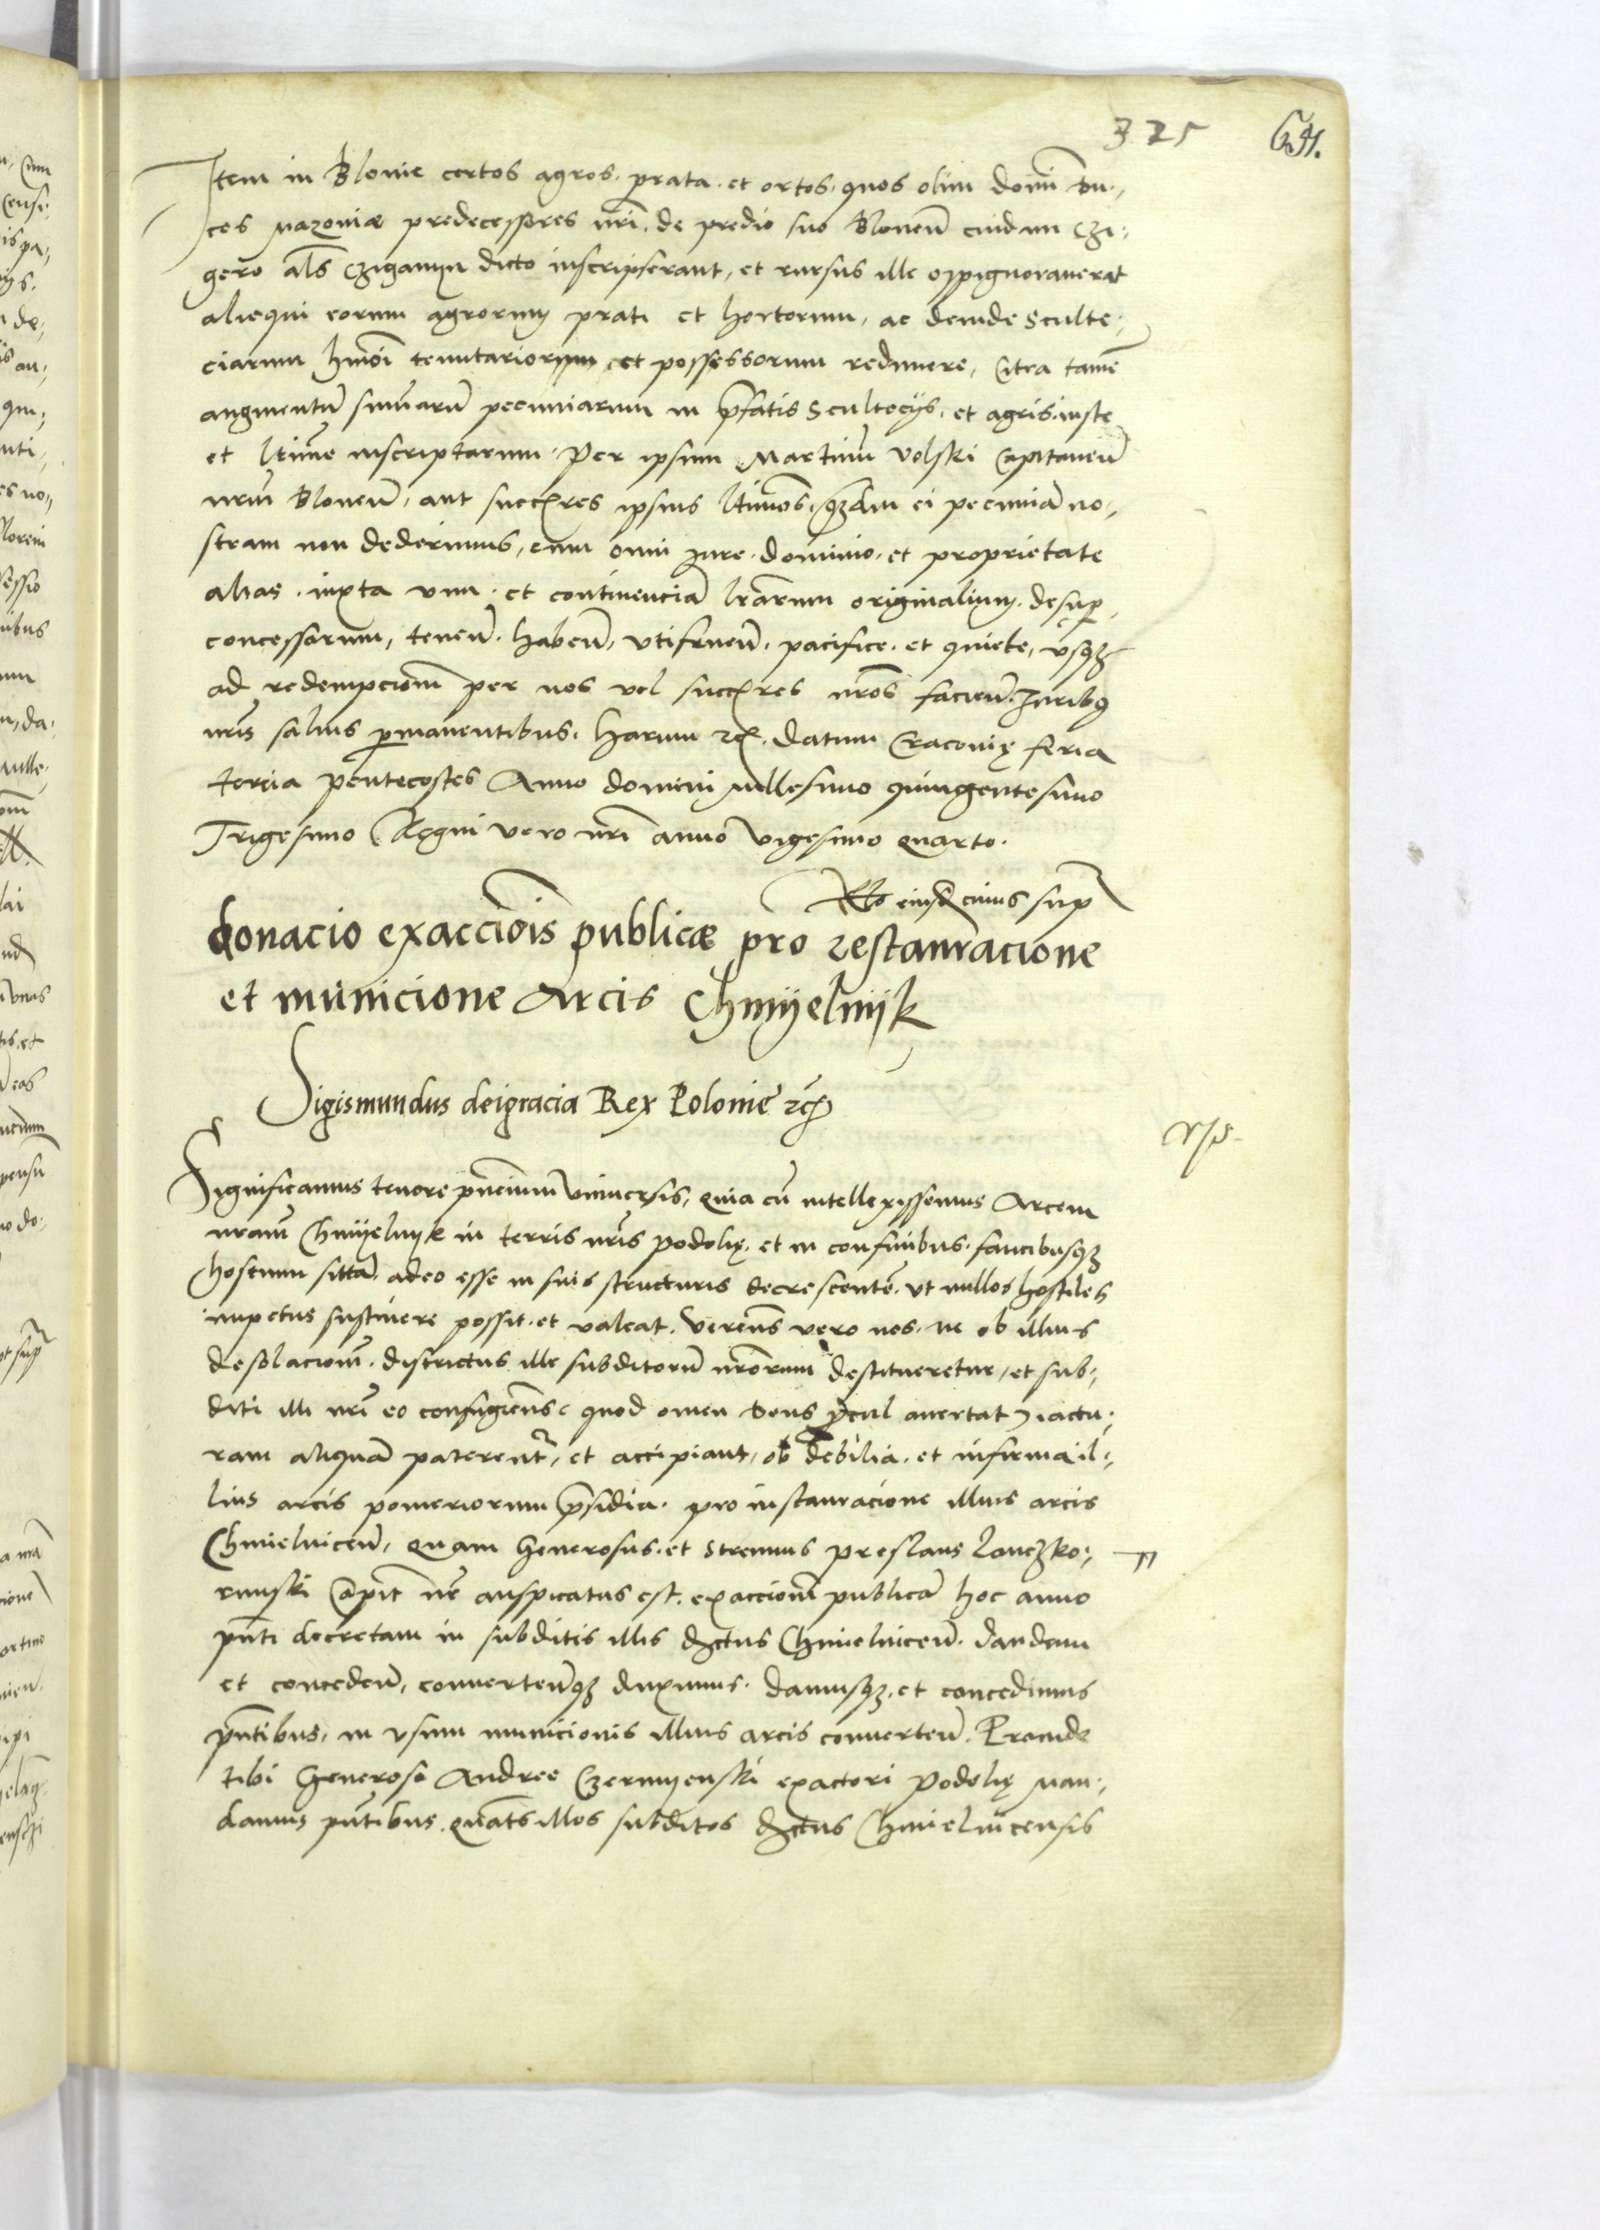 325 651.
Item in Blonie certos agros. prata. et ortos. quos olim domi͂ du,
ces Mazoviæ predecessores nr͂i. de predio suo Blonen͂ cuidam Czi,
gero al͂s Cziganyn dicto inscripserant, et rursus ille oppignoraverat
aliequi eorum agrorum prati et hortorum, ac deinde Sculte,
ciarum hm͂oi tenutariorum et possessorum redimere, Citra tame͂
augmentu͂ summaru͂ pecuniarum in p͂fatis Scultecijs. et agris. iuste
et l͂time inscriptarum. Per ipsum Martinu͂ Volski Capitaneu͂
nr͂m Blonen͂, aut succ͂res ipsius l͂timos, quam ei pecunia͂ no,
stram non dederimus, cum omni iure. dominio. et proprietate
alias. iuxta vim. et continencia͂ l͂rarum originalium. desup͂
concessarum, tenen͂. haben͂, utifruen͂. pacifice. et quiete, usq3
ad redempcione͂ per nos vel succ͂res nr͂os facien͂. Juribus
nr͂is salvis p͂manentibus. Harum etc͂. Datum Cracovię feria
tercia pentecostes Anno domini Millesimo quingentesimo
Trigesimo Regni vero nr͂i anno vigesimo quarto.
Rl͂o eiusd͂ cuius sup͂
donacio exaccio͂is publicæ pro restauracione
et municione Arcis Chmijelnijk
Sigismundus deigracia Rex Polonie etc͂
Significamus tenore pn͂cium Universis, quia cu͂ intellexissemus Arcem
nr͂am Chmijelnijk in terris nr͂is podolię. et in confinibus. faucibusq3
hostium sitta͂. adeo esse in suis structuris decrescente͂. ut nullos hostiles
impetus sustinere possit. et valeat. Veren͂s vero nos. ne ob illius
desolacione͂. districtus ille subditoru͂ nr͂orum destitueretur, et sub,
diti illi nr͂i eo confugien͂s (quod omen Deus p͂cul avertat) iactu,
ram aliqua͂ paterent͂r, et accipiant, ob debilia. et infirma il,
lius arcis pomeriorum p͂sidia. pro instauracione illius arcis
Chmielnicen͂, Quam Generosus. et Strenuus Preslaus Lanczko,
runski Capit͂ nr͂ auspicatus est. exaccione͂ publica͂ hoc anno
pn͂ti decretam in subditis illis d͂ctus Chmielnicen͂. dandam
et conceden͂, converten͂q3 duximus. damusq3. et concedimus
pn͂tibus, in usum municionis illius arcis converten͂. Proinde
tibi Generoso Andree Czermyenski exactori Podolię man,
damus pn͂tibus. quat͂s illos subditos d͂ctus Chmielnicensis